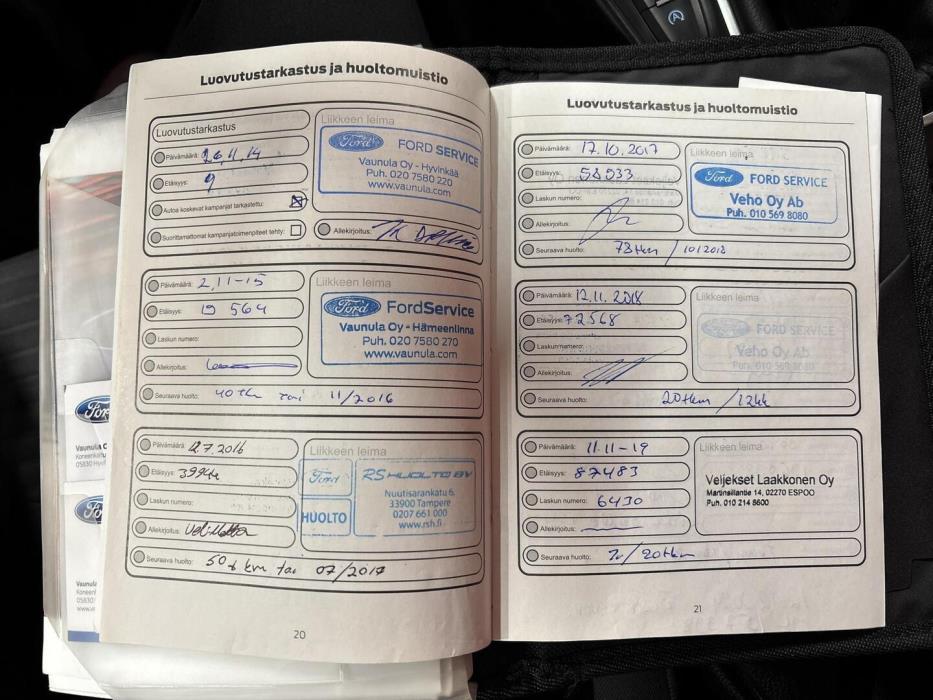 Luovutustarkastus ja huoltomuistio
Luovutustarkastus
Päivämäärä: 26.11.14
Etäisyys: 9
Autoa koskevat kampanjat tarkastettu:
Suorittamattomat kampanjatoimenpiteet tehty:
Liikkeen leima
Ford FORD SERVICE
Vaunula Oy - Hyvinkää
Puh. 020 7580 220
www.vaunula.com
Allekirjoitus:
Päivämäärä: 2.11-15
Etäisyys: 19 564
Laskun numero:
Allekirjoitus:
Liikkeen leima
Ford FordService
Vaunula Oy - Hämeenlinna
Puh. 020 7580 270
www.vaunula.com
Seuraava huolto: 40 tkm tai 11/2016
Päivämäärä: 12.7.2016
Etäisyys:
Laskun numero:
Allekirjoitus:
Liikkeen leima
Ford
HUOLTO
RS HUOLTO BV
Nuutisarankatu 6,
33900 Tampere
0207 661 000
www.rsh.fi
Seuraava huolto: 50 t km tai 07/2017
20
Luovutustarkastus ja huoltomuistio
Päivämäärä: 17.10.2017
Etäisyys: 58533
Laskun numero:
Allekirjoitus:
Liikkeen leima
Ford FORD SERVICE
Veho Oy Ab
Puh. 010 569 8080
Seuraava huolto: 78 tkm / 10/2018
Päivämäärä: 12.11.2018
Etäisyys: 72568
Laskun numero:
Allekirjoitus:
Liikkeen leima
Ford FORD SERVICE
Veho Oy Ab
Puh. 010 569 8080
Seuraava huolto: 20tkm /12kk
Päivämäärä: 11.11-19
Etäisyys: 87483
Laskun numero: 6430
Allekirjoitus:
Liikkeen leima
Veljekset Laakkonen Oy
Martinsillantie 14, 02270 ESPOO
Puh. 010 214 8600
Seuraava huolto: /20tkm
21